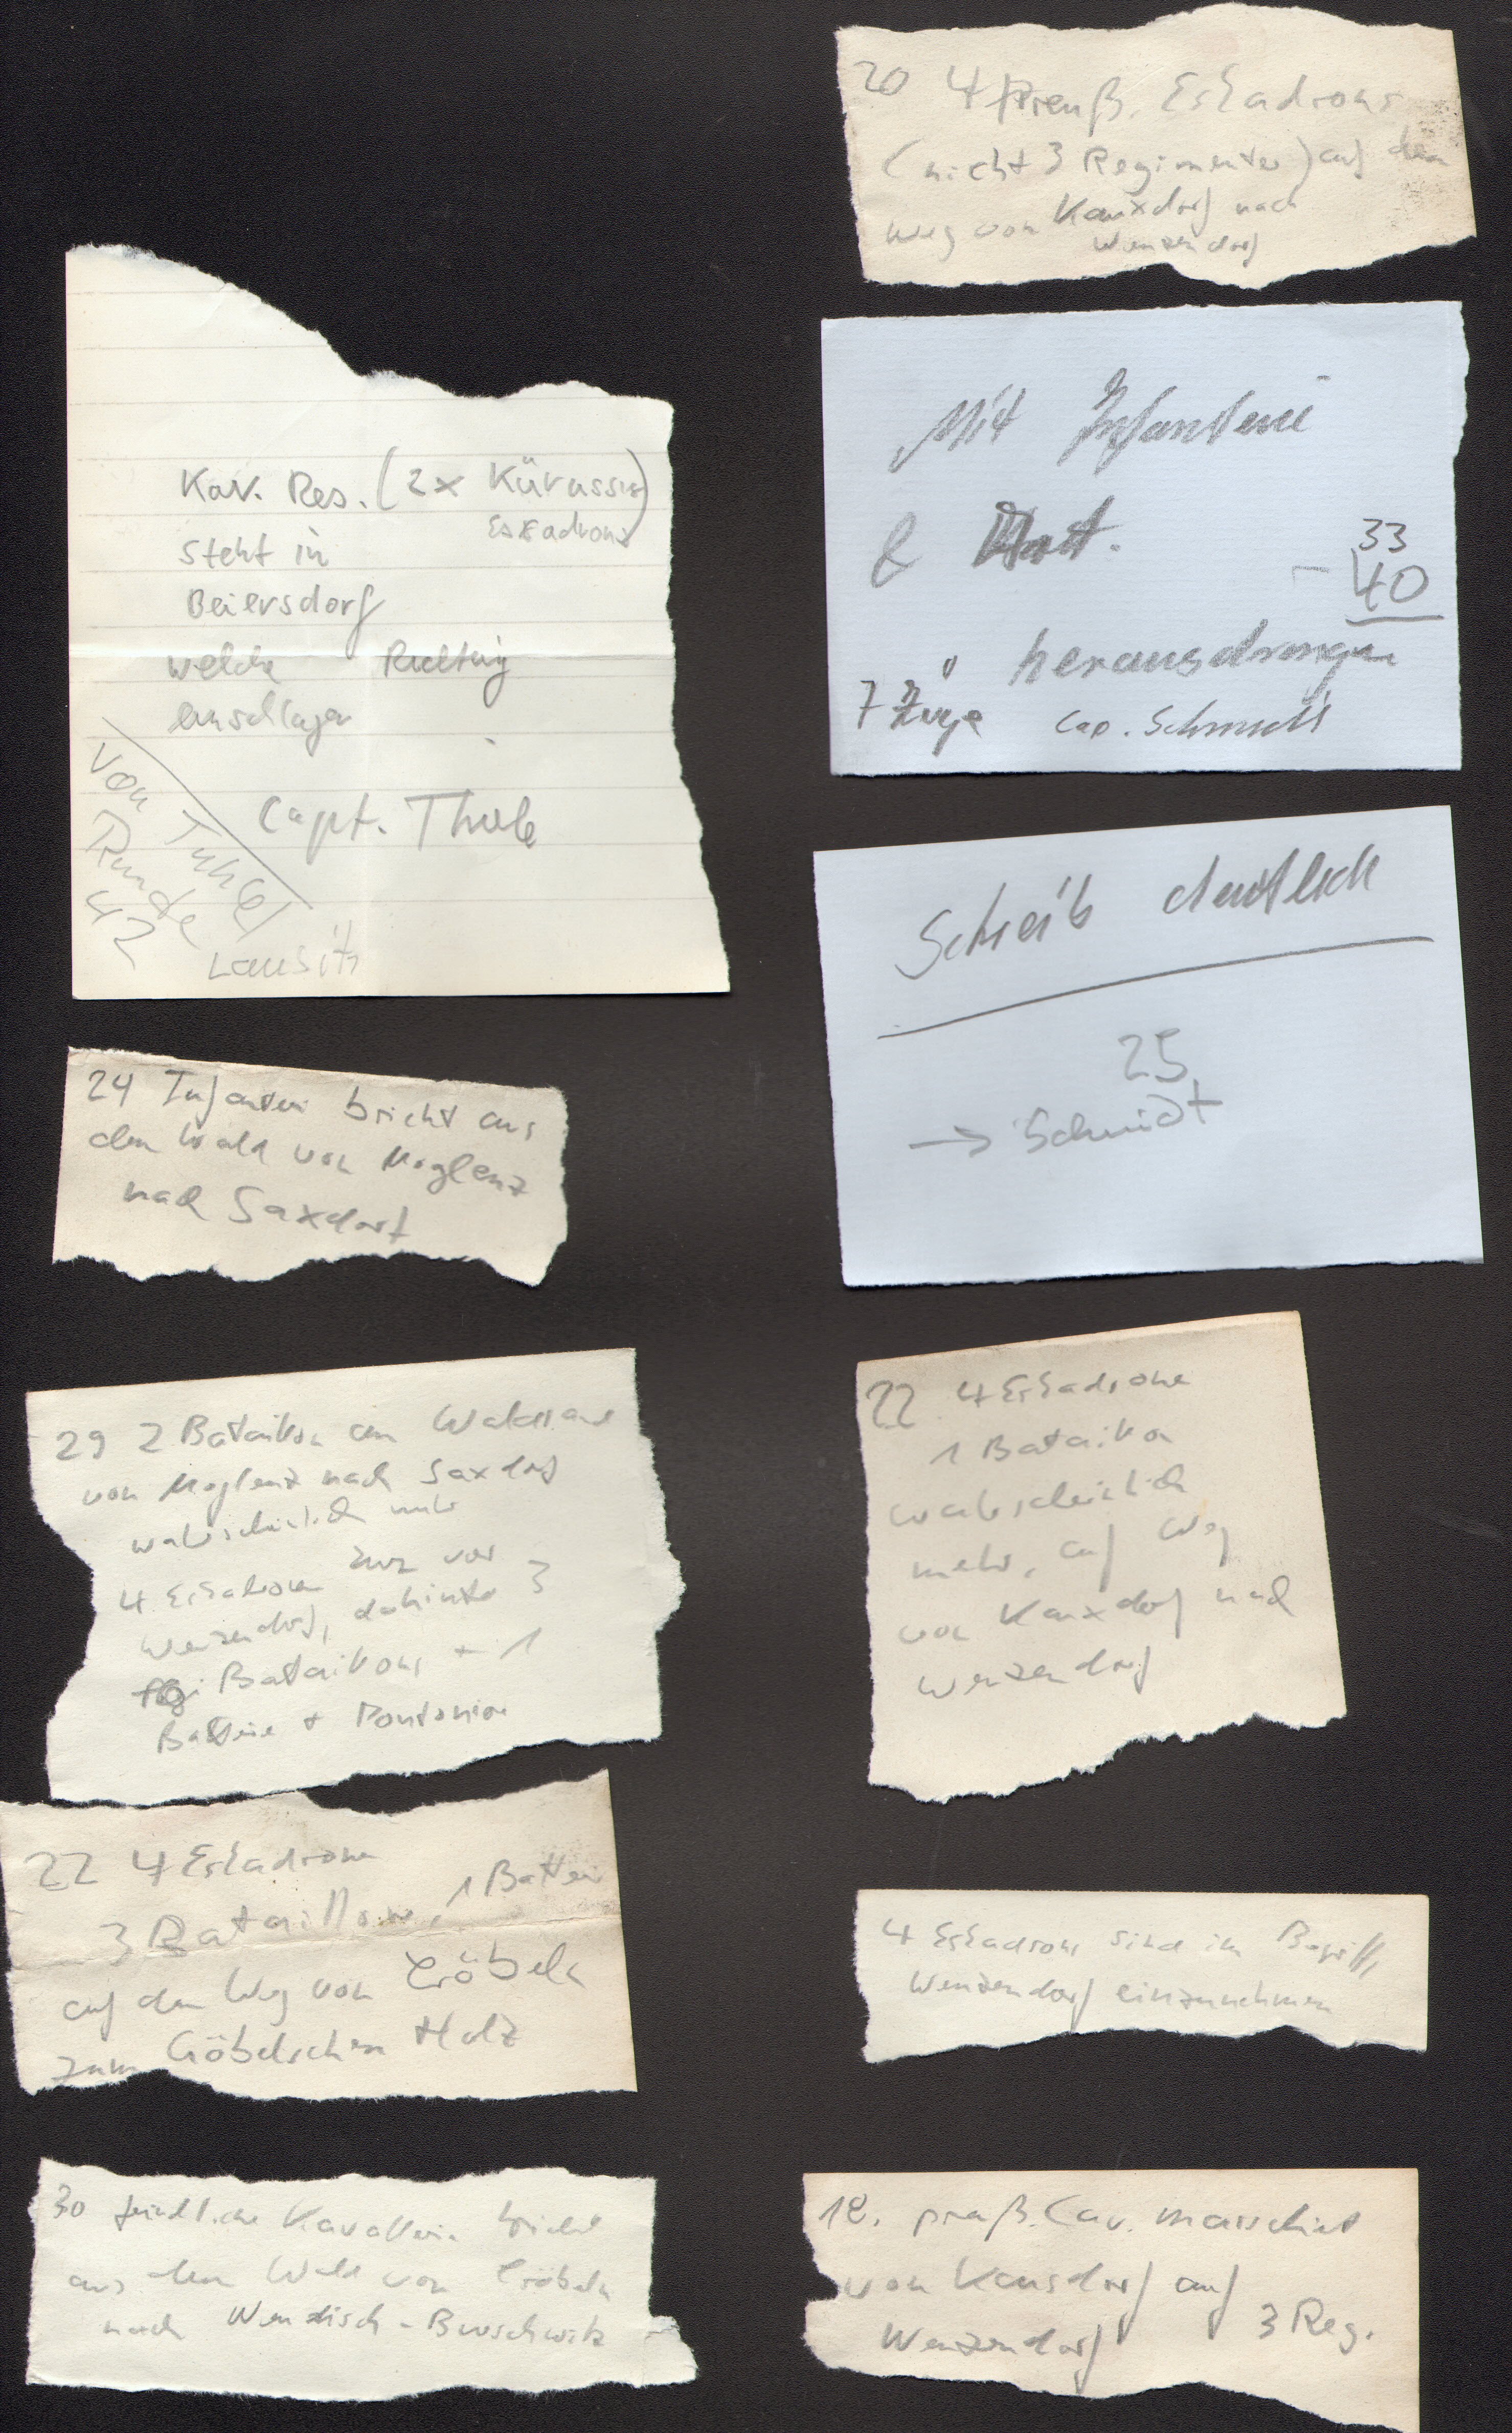 20 4 Preuß. Eskadrons
(nicht 3 Regimenter) auf dem
Weg von Kauxdorf nach
Wenzendorf
Mit Infanterie
& Art.
33
- 40
herausdrängen
7 Züge Cap. Schmidt
Kav. Res. (2x Kürassier)
Eskadrons
steht in
Beiersdorf
welche Richtung
einschlagen
Capt. Thiele
von Tuhel
Runde
42
Lausitz
Schreib deutlich
25
→ Schmidt
24 Infanterie bricht aus
dem Wald von Moglenz
nach Saxdorf
29 2 Bataillon am
von Moglenz nach Saxdorf
wahrscheinlich mehr
4 Eskadronen kurz vor
Wenzendorf, dahinter 3
Bataillons + 1
Batterie + Pontonier
22 4 Eskadrone
1 Bataillon
wahrscheinlich
mehr, auf Weg
von Kauxdorf nach
Wenzendorf
22 4 Eskadrone
3 Bataillone, 1 Batterie
auf dem Weg von Cröbeln
zum Göbelschen Holz
4 Eskadrons sind im Begriff,
Wenzendorf einzunehmen
30 feindliche Kavallerie bricht
aus dem Wald von Cröbeln
nach Wendisch-Burschwitz
18. preuß. Cav. marschiert
von Kausdorf auf
Wenzendorf 3 Reg.